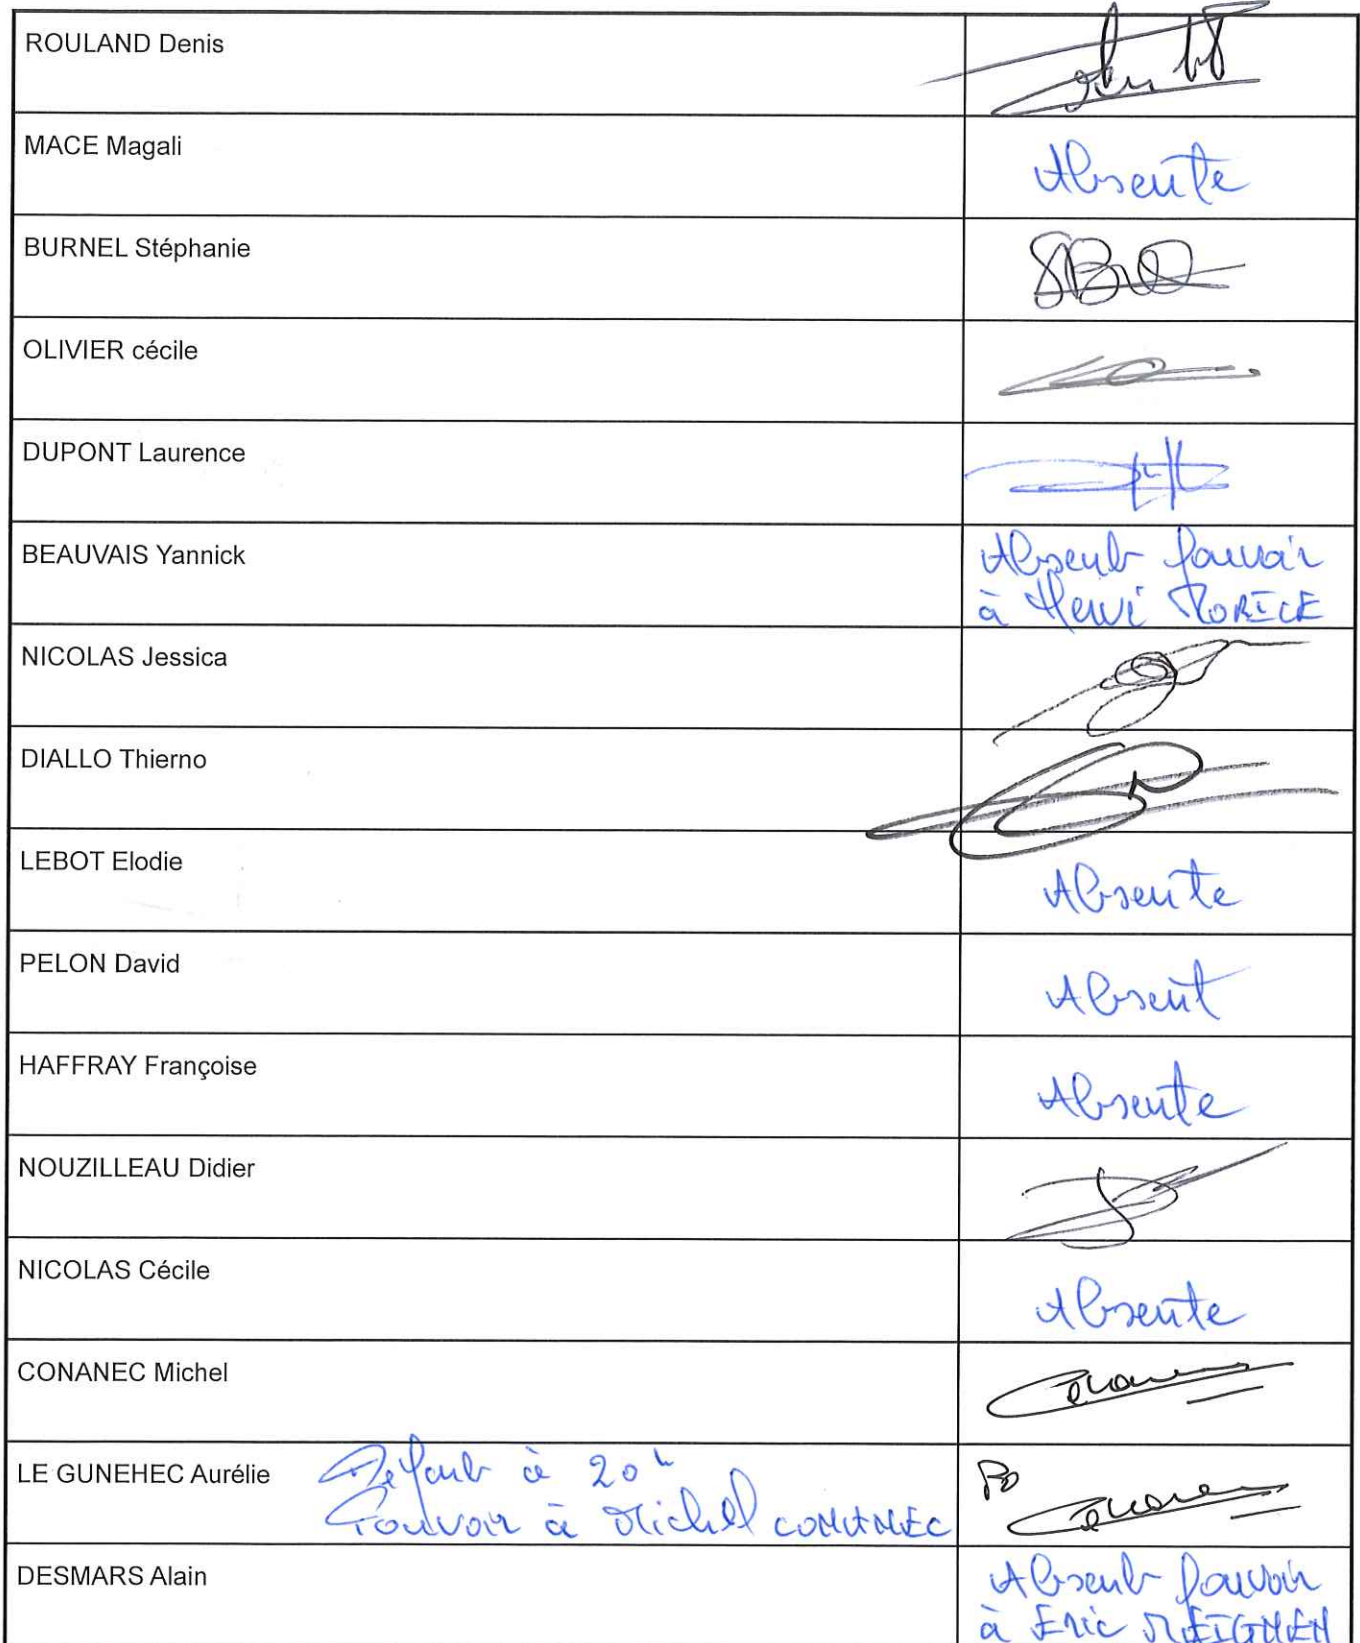 ROULAND Denis
MACE Magali
Absente
BURNEL Stéphanie
OLIVIER cécile
DUPONT Laurence
BEAUVAIS Yannick
Absent pouvoir
à Hervé MORICE
NICOLAS Jessica
DIALLO Thierno
LEBOT Elodie
Absente
PELON David
Absent
HAFFRAY Françoise
Absente
NOUZILLEAU Didier
NICOLAS Cécile
Absente
CONANEC Michel
LE GUNEHEC Aurélie
à 20h
Pouvoir à Michel CONANEC
Po
DESMARS Alain
Absent pouvoir
à Eric MEIGNEN